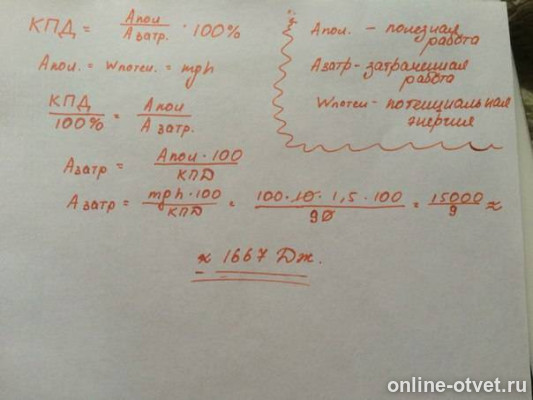 КПД = Апол / Азатр. · 100%
Апол. = Wпотен. = mgh
КПД / 100% = Апол / Азатр.
Азатр = Апол · 100 / КПД
Азатр = mgh · 100 / КПД = 100 · 10 · 1,5 · 100 / 90 = 15000 / 9 ≈
≈ 1667 Дж.
Апол. - полезная
работа
Азатр - затраченная
работа
Wпотен - потенциальная
энергия
online-otvet.ru